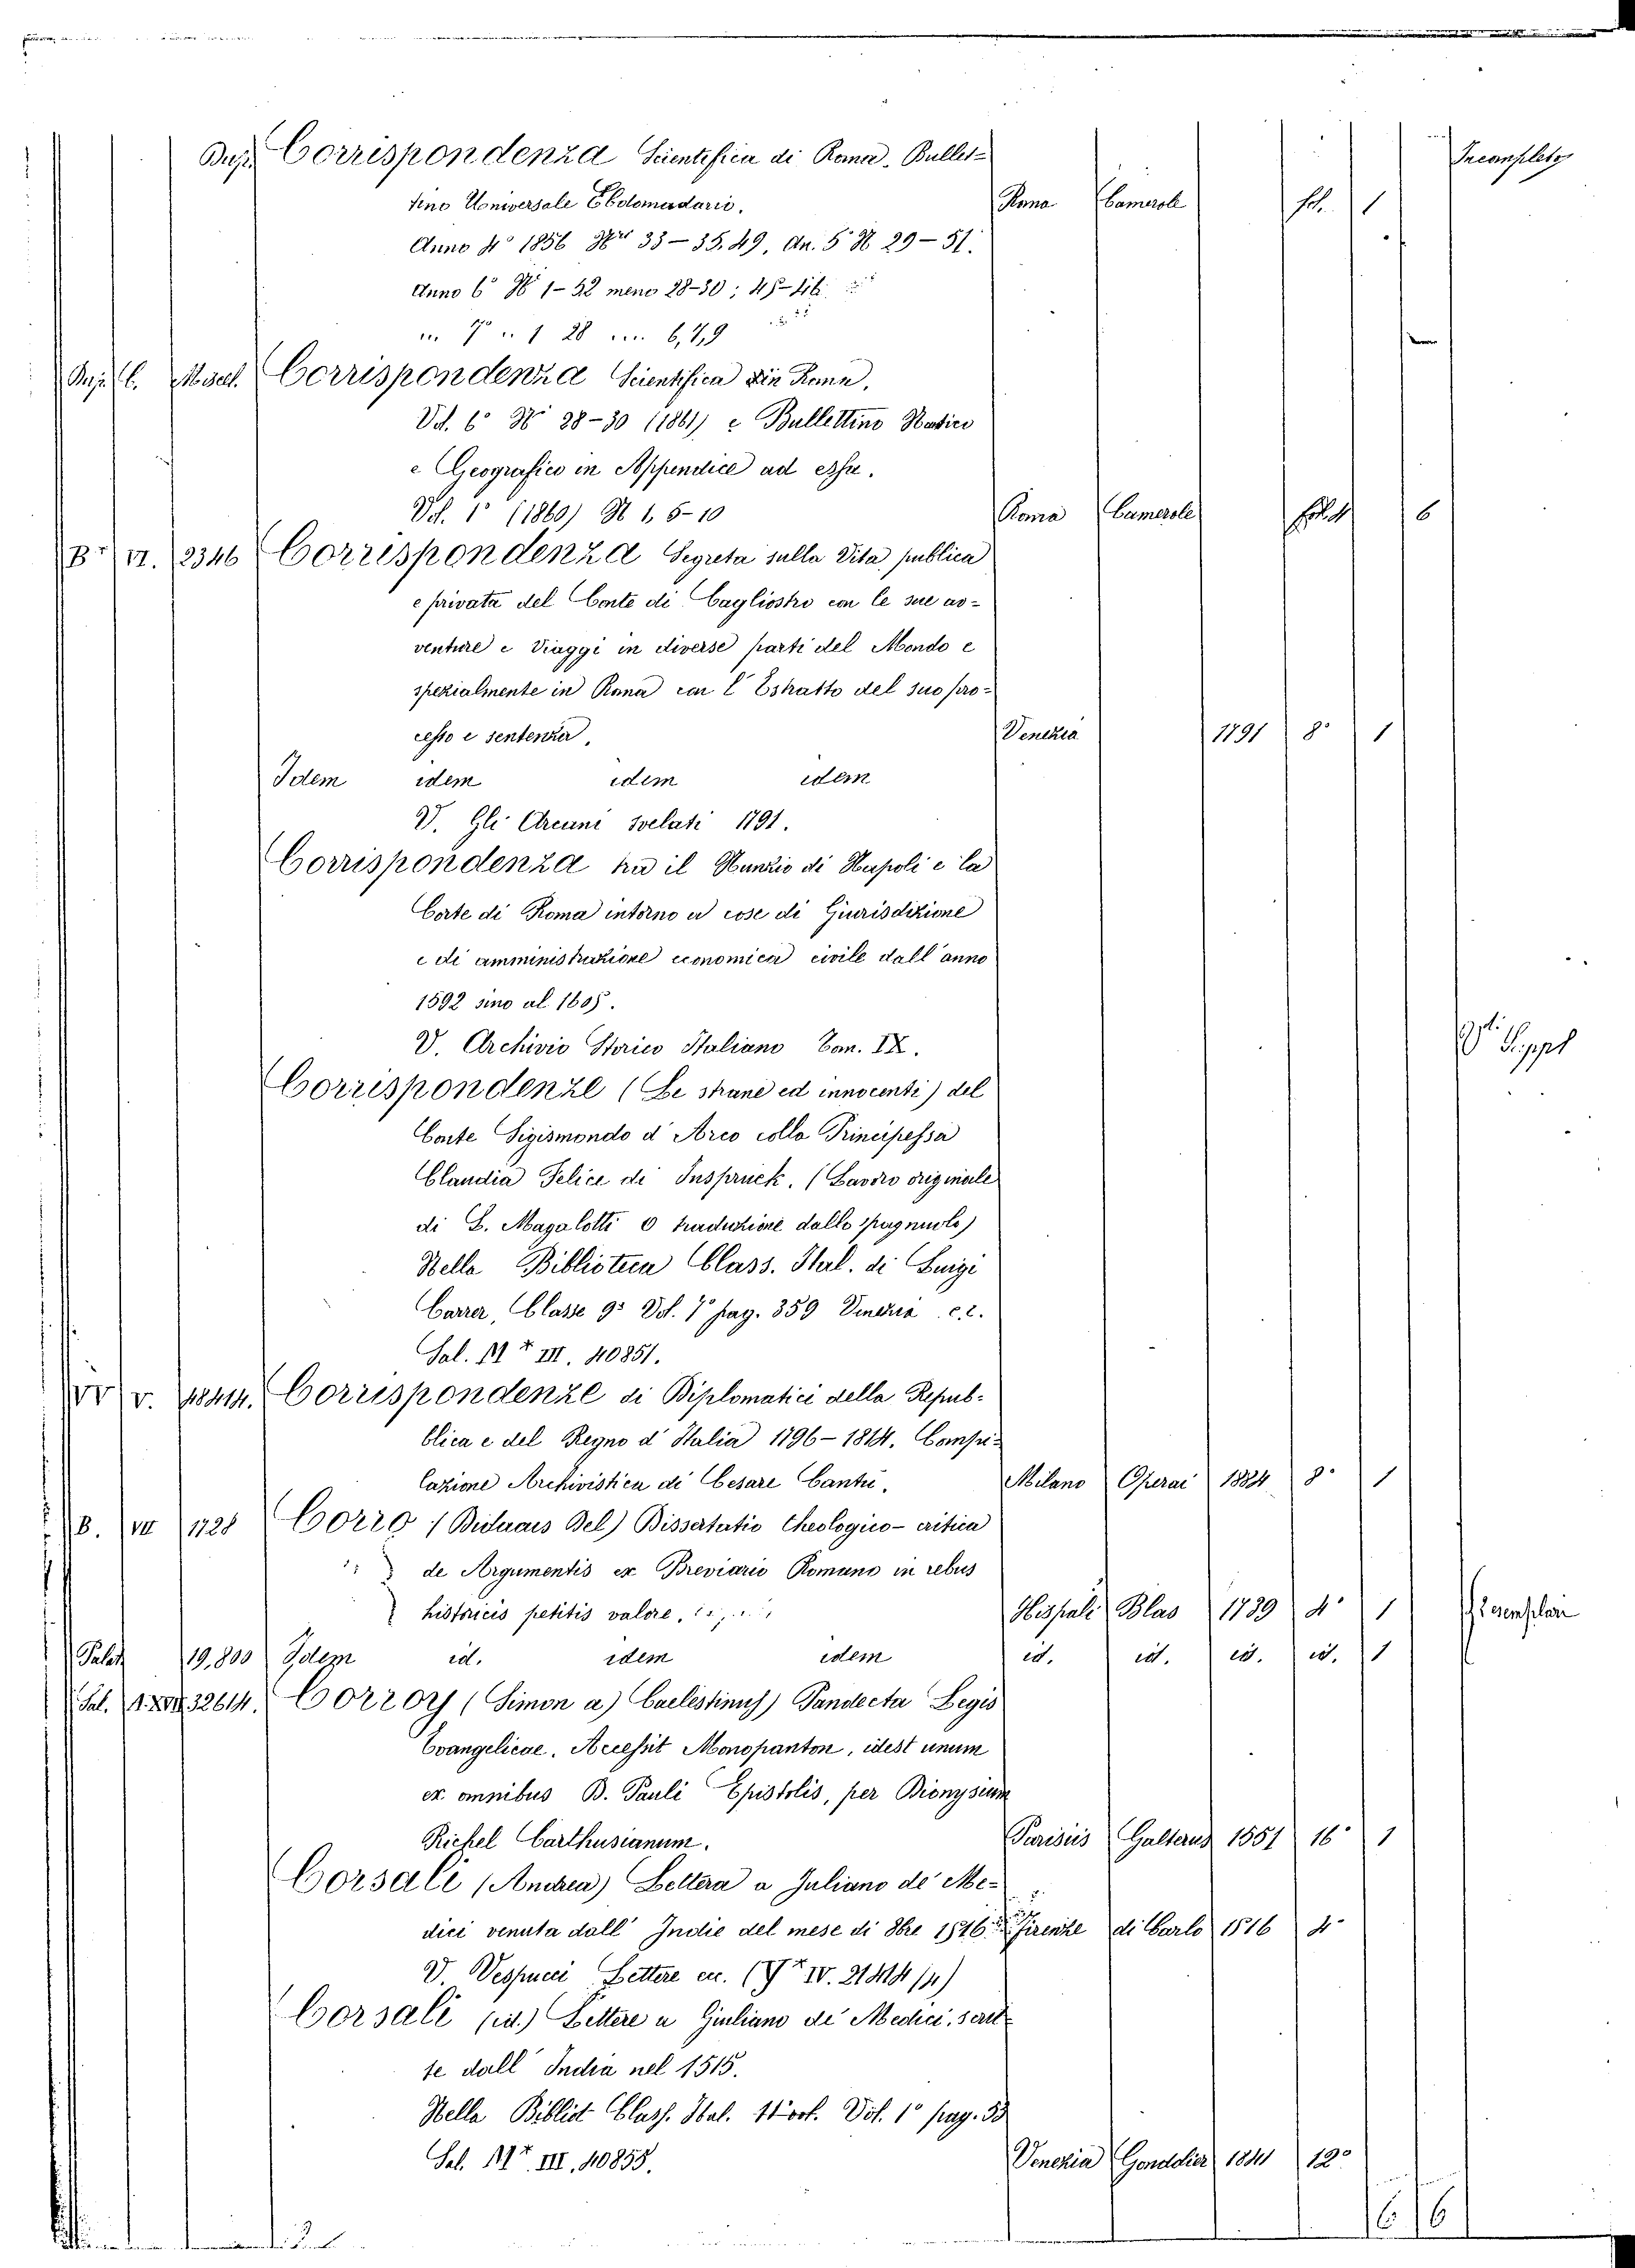 Corrispondenza Scientifica di Roma. Bullet- Incompleto
tino Universale Ebdomadario. Roma Camerole fol. 1
Anno 4° 1856 Nri 33-35.49, An. 5° N 29-51.
Anno 6° N 1-52 meno 28-30; 45-46
" 7° " 1 28 " 6,7,9
C. Miscell. Corrispondenza Scientifica di Roma,
Vol. 6° N 28-30 (1861) e Bullettino Nautico
e Geografico in Appendice ad essa.
Vol. 1° (1860) N 1, 5-10 Roma Camerole fol. 6
B VI. 2346 Corrispondenza Segreta sulla Vita publica
e privata del Conte di Cagliostro con le sue av-
venture e Viaggi in diverse parti del Mondo e
spezialmente in Roma con l'Estratto del suo pro-
cesso e sentenza. Venezia 1791 8° 1
Idem idem idem idem
V. Gli Arcani svelati 1791.
Corrispondenza tra il Nunzio di Napoli e la
Corte di Roma intorno a cose di Giurisdizione
e di amministrazione economica civile dall'anno
1592 sino al 1605.
V. Archivio Storico Italiano Tom. IX. Suppl
Corrispondenze (Le strane ed innocenti) del
Conte Sigismondo d'Arco colla Principessa
Claudia Felice di Inspruck. (Lavoro originale
di L. Magalotti o traduzione dallo spagnuolo)
Nella Biblioteca Class. Ital. di Luigi
Carrer, Classe 9a Vol. 7° pag. 359 Venezia c.2.
Sal. III. 40851.
V. 18414. Corrispondenze di Diplomatici della Repub-
blica e del Regno d'Italia 1796-1814. Compi-
lazione Archivistica di Cesare Cantù. Milano Operai 1884 8° 1
B. VII 1728 Corro (Didacus Del) Dissertatio theologico-critica
de Argumentis ex Breviario Romano in rebus
historicis petitis valore, Hispali Blas 1739 4° 1 Esemplari
Palat 19,800 Idem id. idem idem id. id. id. id. 1
Sal. 32614. Corroy (Simon a) Caelestinus) Pandecta Legis
Evangelicae. Accessit Monopanton, idest unum
ex omnibus B. Pauli Epistolis, per Dionysium
Richel Carthusianum. Parisiis Galterus 1551 16° 1
Corsali (Andrea) Lettera a Juliano de' Me-
dici venuta dall' Indie del mese di 8bre 1516. Firenze di Carlo 1516 4°
V. Vespucci Lettere ec. (IV. 21414/4)
Corsali (id.) Lettere a Giuliano de' Medici, scrit-
te dall' India nel 1515.
Nella Bibliot Class. Ital. Vol. 1° pag. 53
Sal. III. 40855. Venezia Gondolier 1841 12°
16 16